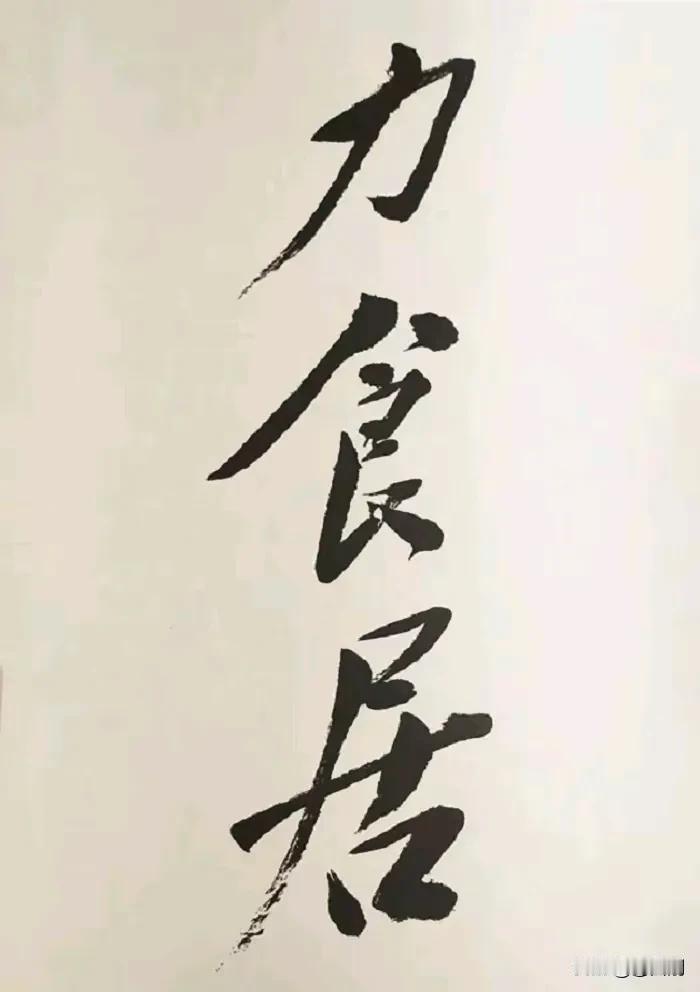 力食居